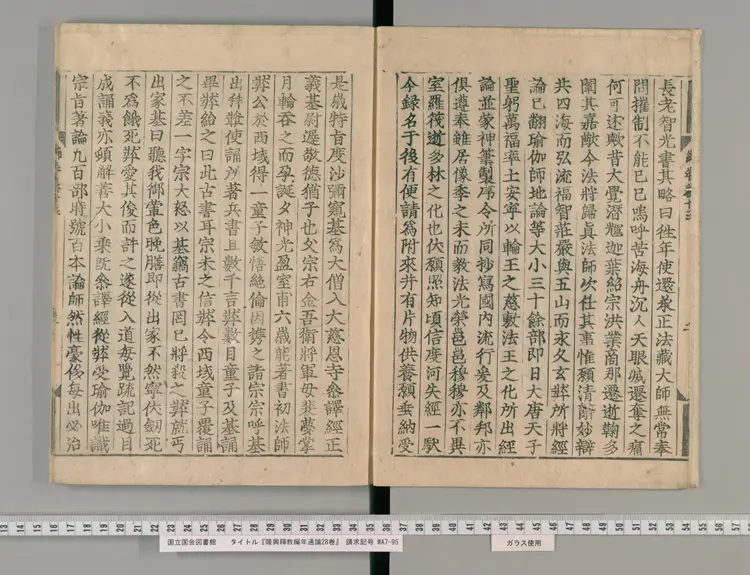 長老智光書其略曰徃年使還承正法藏大師無常奉
問摧制不能已已嗚呼苦海舟沉人天眼滅遷奪之痛
何可述歟昔大覺潛輝迦葉紹宗洪業商那遷逝鞠多
闡其嘉猷今法將歸眞法師次任其事惟願清詞妙辯
共四海而弘流福智莊嚴與五山而永久玄奘所將經
論已翻瑜伽師地論等大小三十餘部即日大唐天子
聖躬萬福率土安寧以輪王之慈敷法王之化所出經
論並蒙神筆製序令所同抄寫國內流行爰及鄰邦亦
俱遵奉雖居像季之末而教法光榮邕邕穆穆亦不異
室羅筏逝多林之化也伏願照知頃信度河失經一馱
今録名于後有便請爲附來幷有片物供養願垂納受
是歲特旨度沙彌窺基爲大僧入大慈恩寺叅譯經正
義基尉遲敬德猶子也父宗右金吾衛將軍母裴夢掌
月輪吞之而孕誕夕神光盈室甫六歲能著書初法師
奘公於西域得一童子敏悟絶倫因携之詣宗宗呼基
出拜難使誦所著兵書且數千言奘數目童子及基誦
畢奘紿之曰此古書耳宗未之信奘令西域童子覆誦
之不差一字宗大怒以基竊古書罔已將殺之奘就丐
出家基曰聽我御葷色晚膳即從出家不然寧伏劒死
不爲餓死奘愛其俊而許之遂從入道每覽疏記過目
成誦義亦頓解善大小乘旣叅譯經從奘受瑜伽唯識
宗旨著論九百部時號百本論師然性豪侈每出必治
國立国会図書館 タイトル『隆興釋教編年通論28巻』 請求記号 WA7-95
ガラス使用
13 14 15 16 17 18 19 20 21 22 23 24 25 26 27 28 29 30 31 32 33 34 35 36 37 38 39 40 41 42 43 44 45 46 47 48 49 50 51 52 53 54